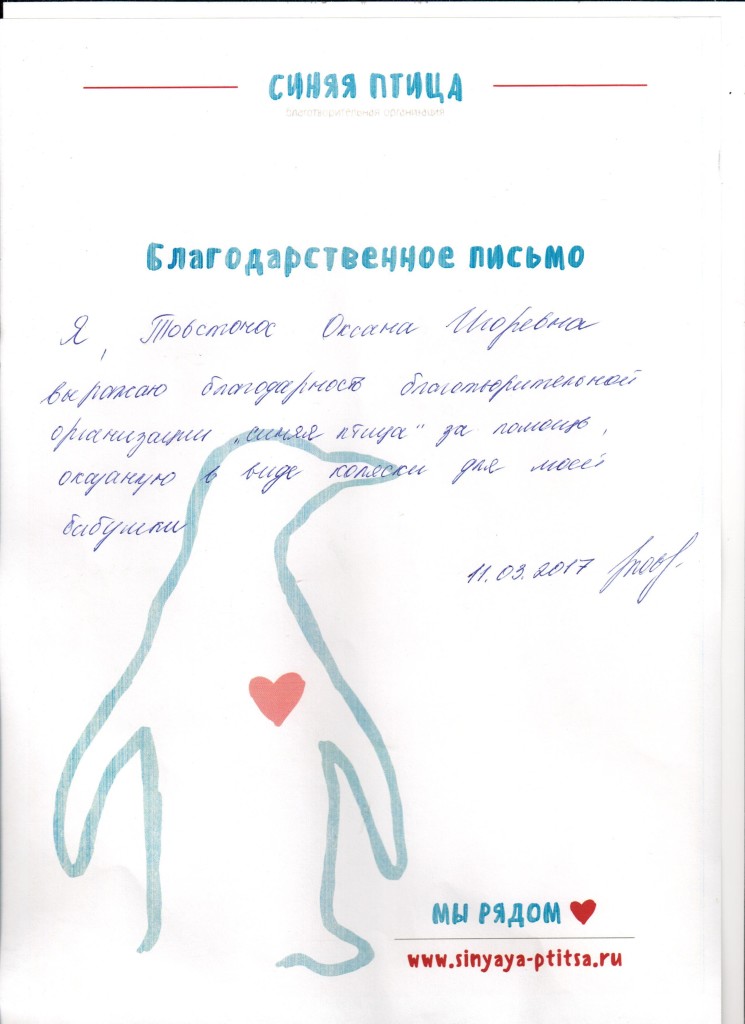 СИНЯЯ ПТИЦА
благотворительная организация
Благодарственное письмо
Я, Товсточос Оксана Игоревна
выражаю благодарность благотворительной
организации „синяя птица“ за помощь,
оказаную в виде коляски для моей
бабушки
11.03.2017
МЫ РЯДОМ
www.sinyaya-ptitsa.ru